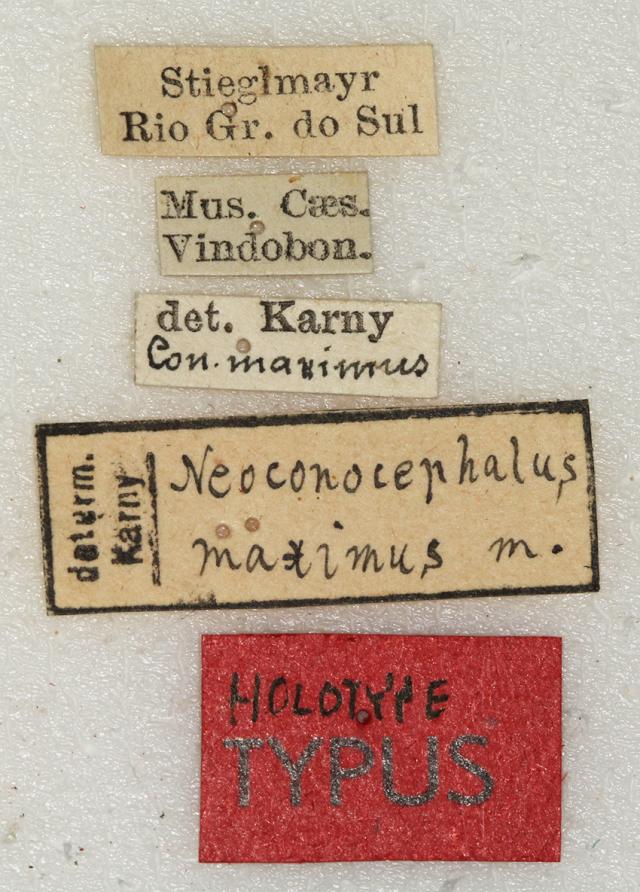 Stieglmayr
Rio Gr. do Sul
Mus. Cæs.
Vindobon.
det. Karny
Con. maximus
determ.
Karny
Neoconocephalus
maximus m.
HOLOTYPE
TYPUS